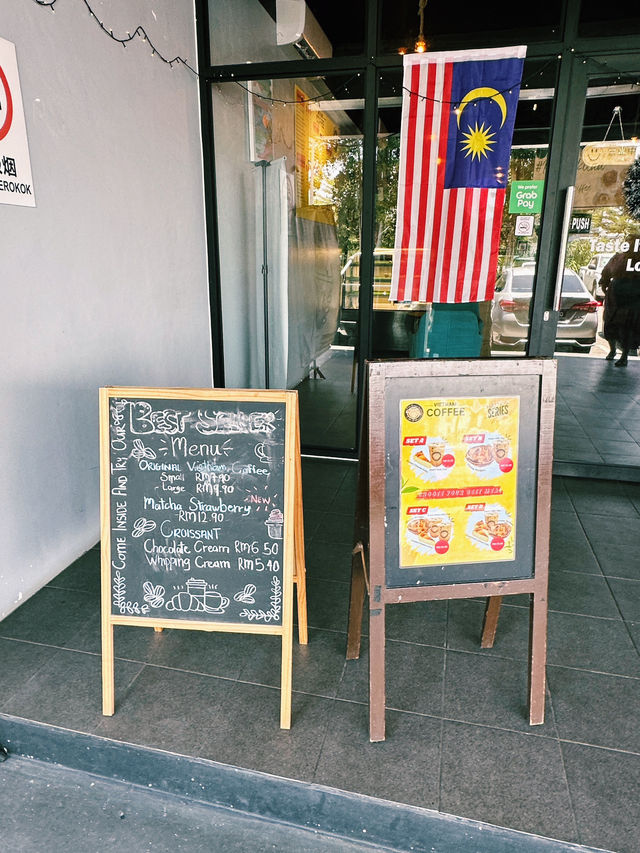 烟
EROKOK
We prefer
Grab
Pay
PUSH
Taste
Come Inside And Try Our
Best Seller
Menu
Original Vietnam Coffee
Small RM7.90
Large RM9.90
NEW
Matcha Strawberry
RM12.90
Croissant
Chocolate Cream RM6.50
Whipping Cream RM5.40
VIETNAM
COFFEE
SERIES
SET A
SET B
CHOOSE YOUR BEST MEAL
SET C
SET D